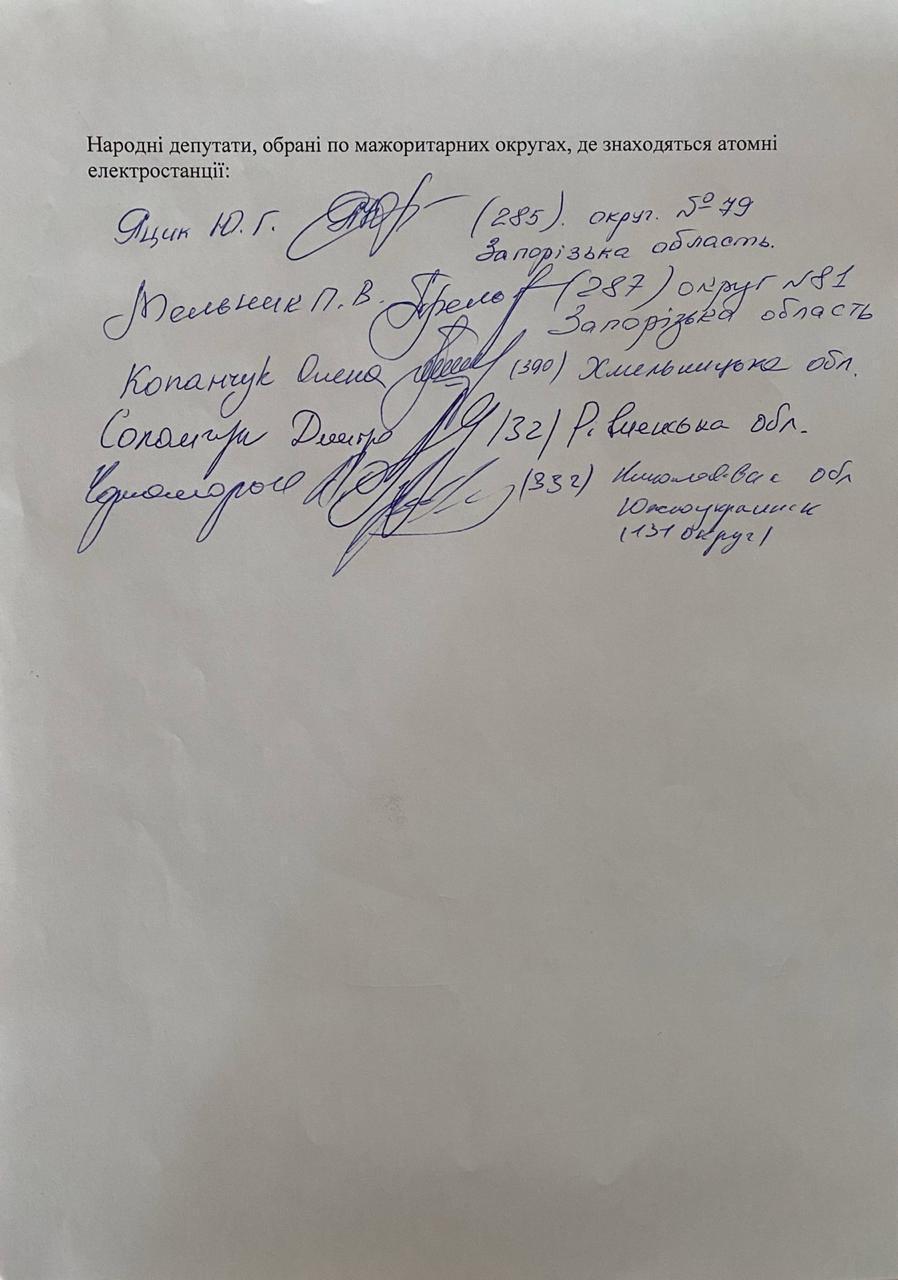 Народні депутати, обрані по мажоритарних округах, де знаходяться атомні
електростанції:
Яцик Ю. Г. (285). округ. №79
Запорізька область.
Мельник П. В. (287) округ N81
Запорізька область
Копанчук Олена (390) Хмельницька обл.
Соломчук Дмитро /32/ Рівненська обл.
Чорноморов А.О. (332) обл
Южноукраинск
(131 округ)